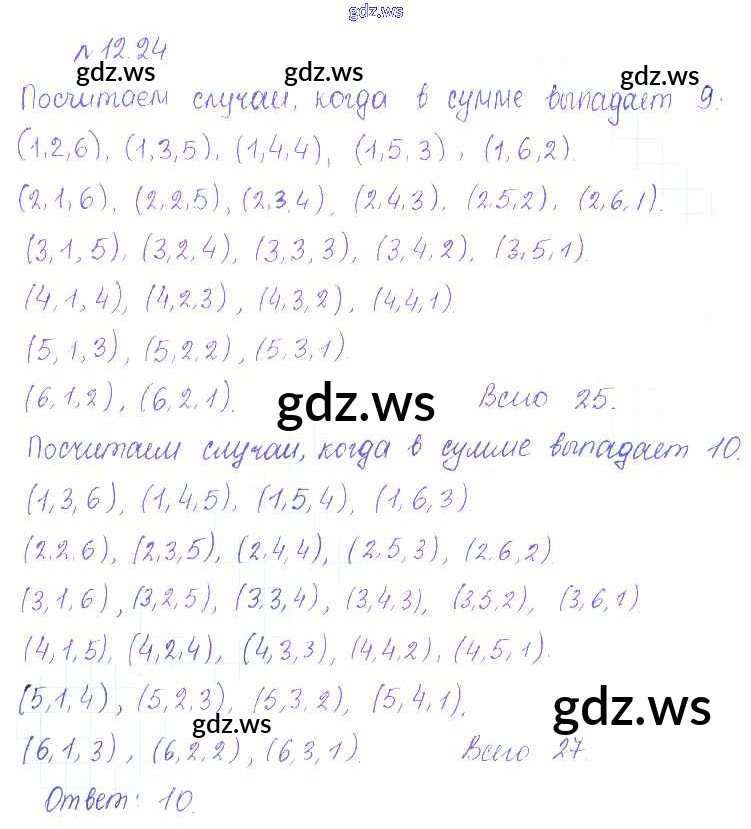 gdz.ws
№ 12.24
gdz.ws gdz.ws gdz.ws
Посчитаем случаи, когда в сумме выпадает 9:
(1,2,6), (1,3,5), (1,4,4), (1,5,3), (1,6,2).
(2,1,6), (2,2,5), (2,3,4), (2,4,3), (2,5,2), (2,6,1).
(3,1,5), (3,2,4), (3,3,3), (3,4,2), (3,5,1).
(4,1,4), (4,2,3), (4,3,2), (4,4,1).
(5,1,3), (5,2,2), (5,3,1).
(6,1,2), (6,2,1). gdz.ws Всего 25.
Посчитаем случаи, когда в сумме выпадает 10.
(1,3,6), (1,4,5), (1,5,4), (1,6,3).
(2,2,6), (2,3,5), (2,4,4), (2,5,3), (2,6,2)
(3,1,6), (3,2,5), (3,3,4), (3,4,3), (3,5,2), (3,6,1)
(4,1,5), (4,2,4), (4,3,3), (4,4,2), (4,5,1).
(5,1,4), (5,2,3), (5,3,2), (5,4,1),
gdz.ws gdz.ws
(6,1,3), (6,2,2), (6,3,1). Всего 27
Ответ: 10.